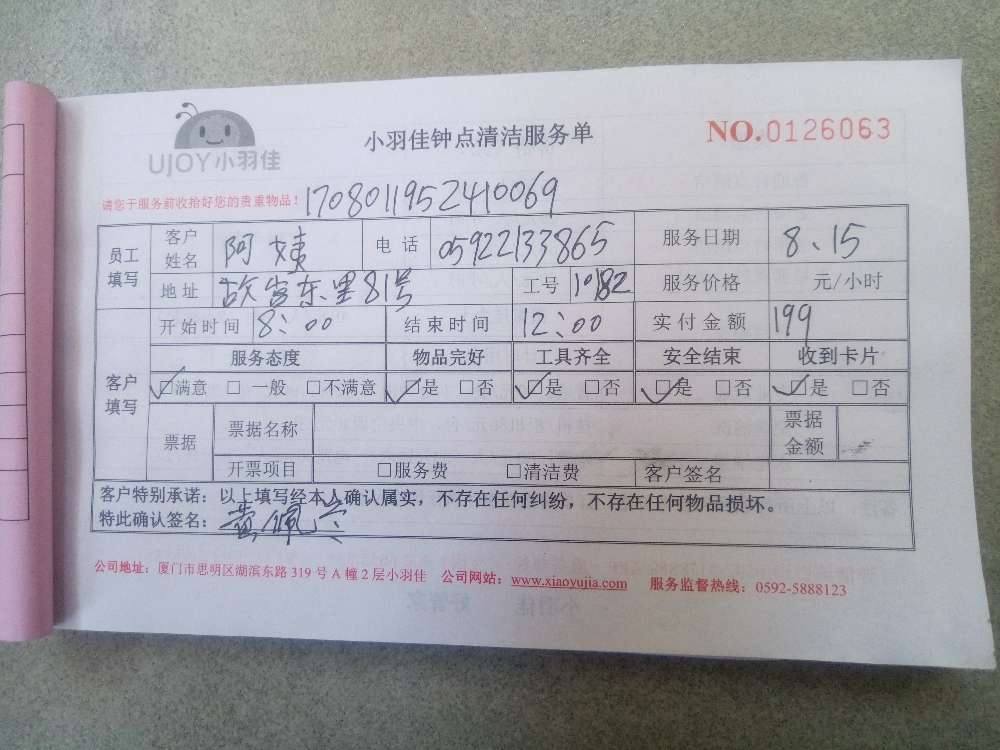 UJOY小羽佳
小羽佳钟点清洁服务单
NO.0126063
请您于服务前收拾好您的贵重物品！
1708011952410069
员工填写 客户姓名 阿姨 电话 05922133865 服务日期 8、15
地址 故宫东里81号 工号 10182 服务价格 元/小时
客户填写 开始时间 8：00 结束时间 12：00 实付金额 199
服务态度 物品完好 工具齐全 安全结束 收到卡片
☑满意 □一般 □不满意 ☑是 □否 ☑是 □否 ☑是 □否 ☑是 □否
票据 票据名称 票据金额
开票项目 □服务费 □清洁费 客户签名
客户特别承诺：以上填写经本人确认属实，不存在任何纠纷，不存在任何物品损坏。
特此确认签名：黄佩
公司地址：厦门市思明区湖滨东路 319 号 A 幢 2 层小羽佳 公司网站：www.xiaoyujia.com 服务监督热线：0592-5888123